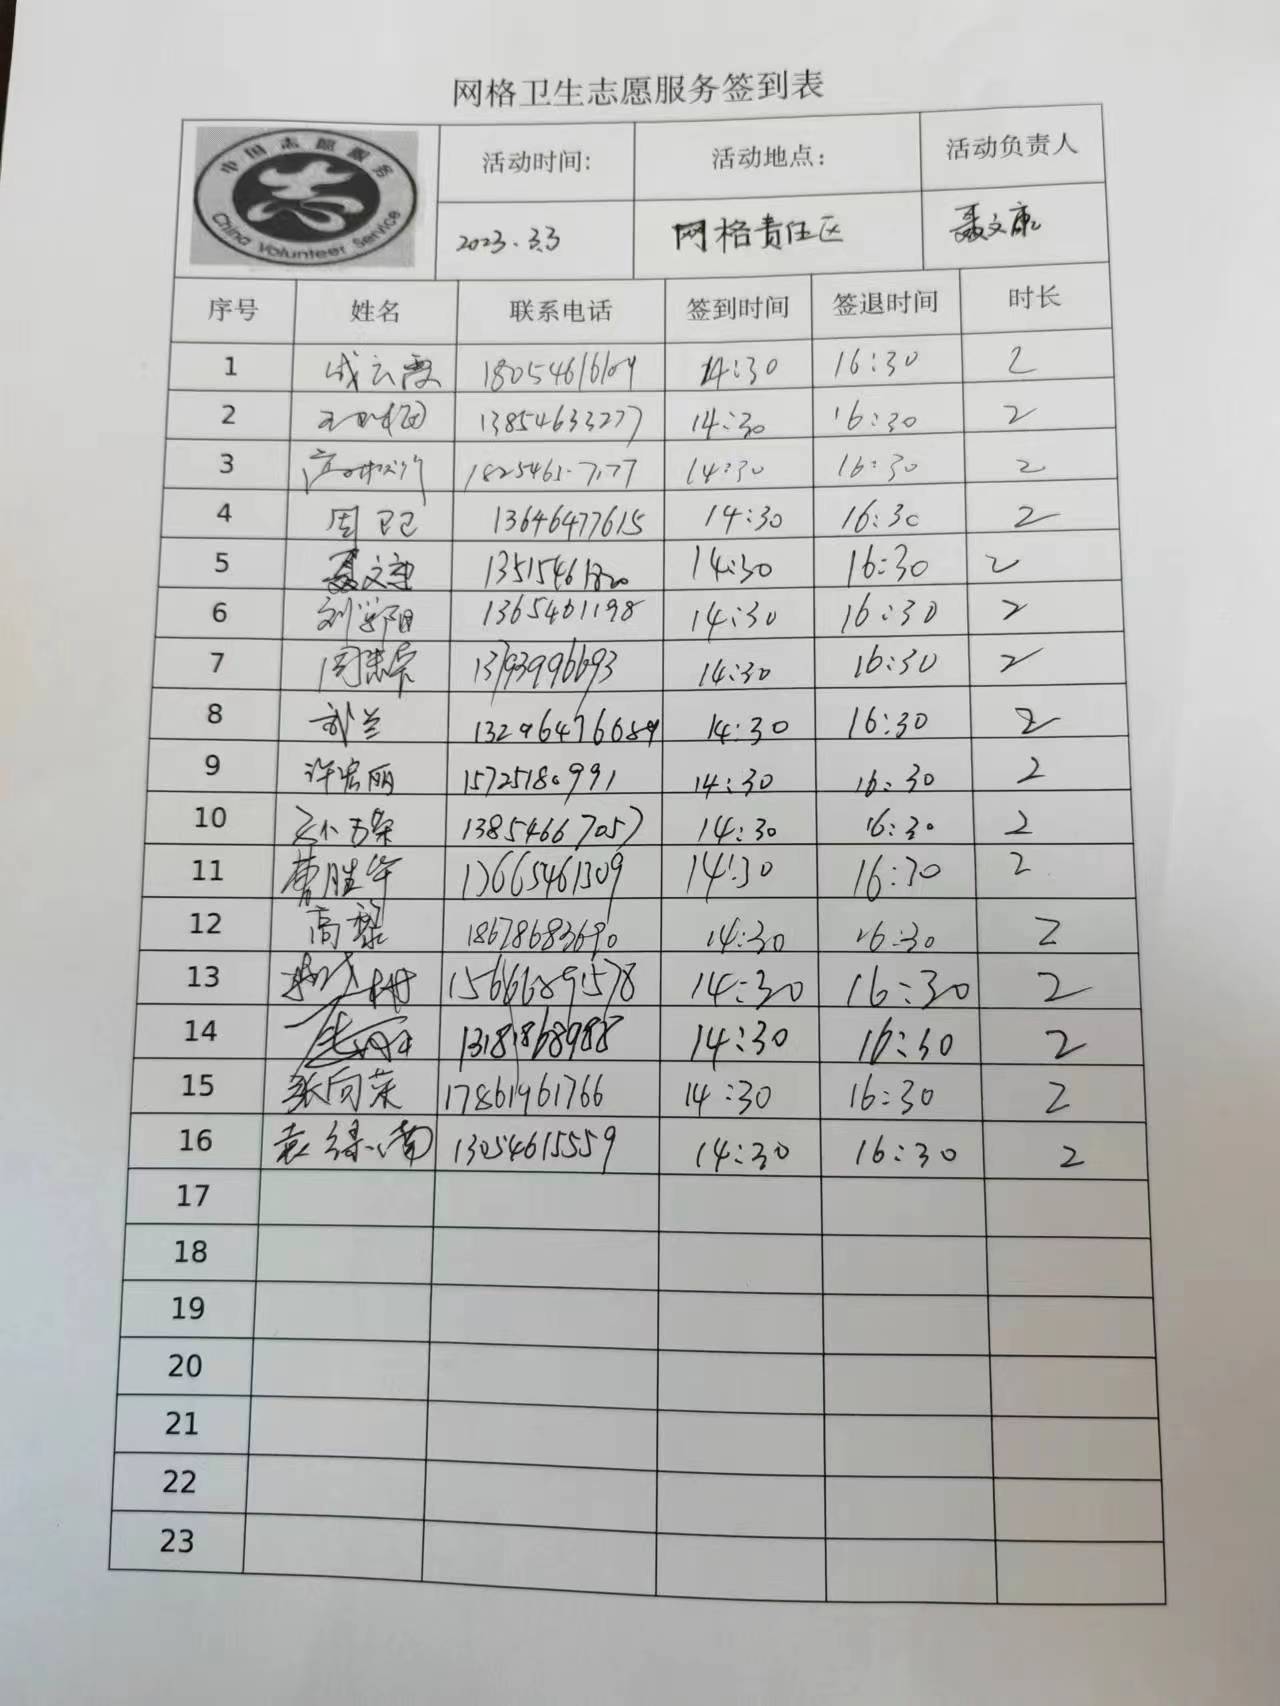 网格卫生志愿服务签到表
中国志愿服务
China Volunteer Service
活动时间: 活动地点: 活动负责人
2023.3.3 网格责任区 聂文康
序号 姓名 联系电话 签到时间 签退时间 时长
1 成云霞 18054616109 14:30 16:30 2
2 13854633277 14:30 16:30 2
3 14:30 16:30 2
4 周卫己 13646477615 14:30 16:30 2
5 聂文康 14:30 16:30 2
6 刘学阳 1365461198 14:30 16:30 2
7 13793996693 14:30 16:30 2
8 武兰 14:30 16:30 2
9 许宏丽 15725180991 14:30 16:30 2
10 13854667057 14:30 16:30 2
11 曹胜华 13665461309 14:30 16:30 2
12 高黎 18678683690 14:30 16:30 2
13 15666891578 14:30 16:30 2
14 13181868988 14:30 16:30 2
15 张向荣 17861961766 14:30 16:30 2
16 13054615559 14:30 16:30 2
17
18
19
20
21
22
23